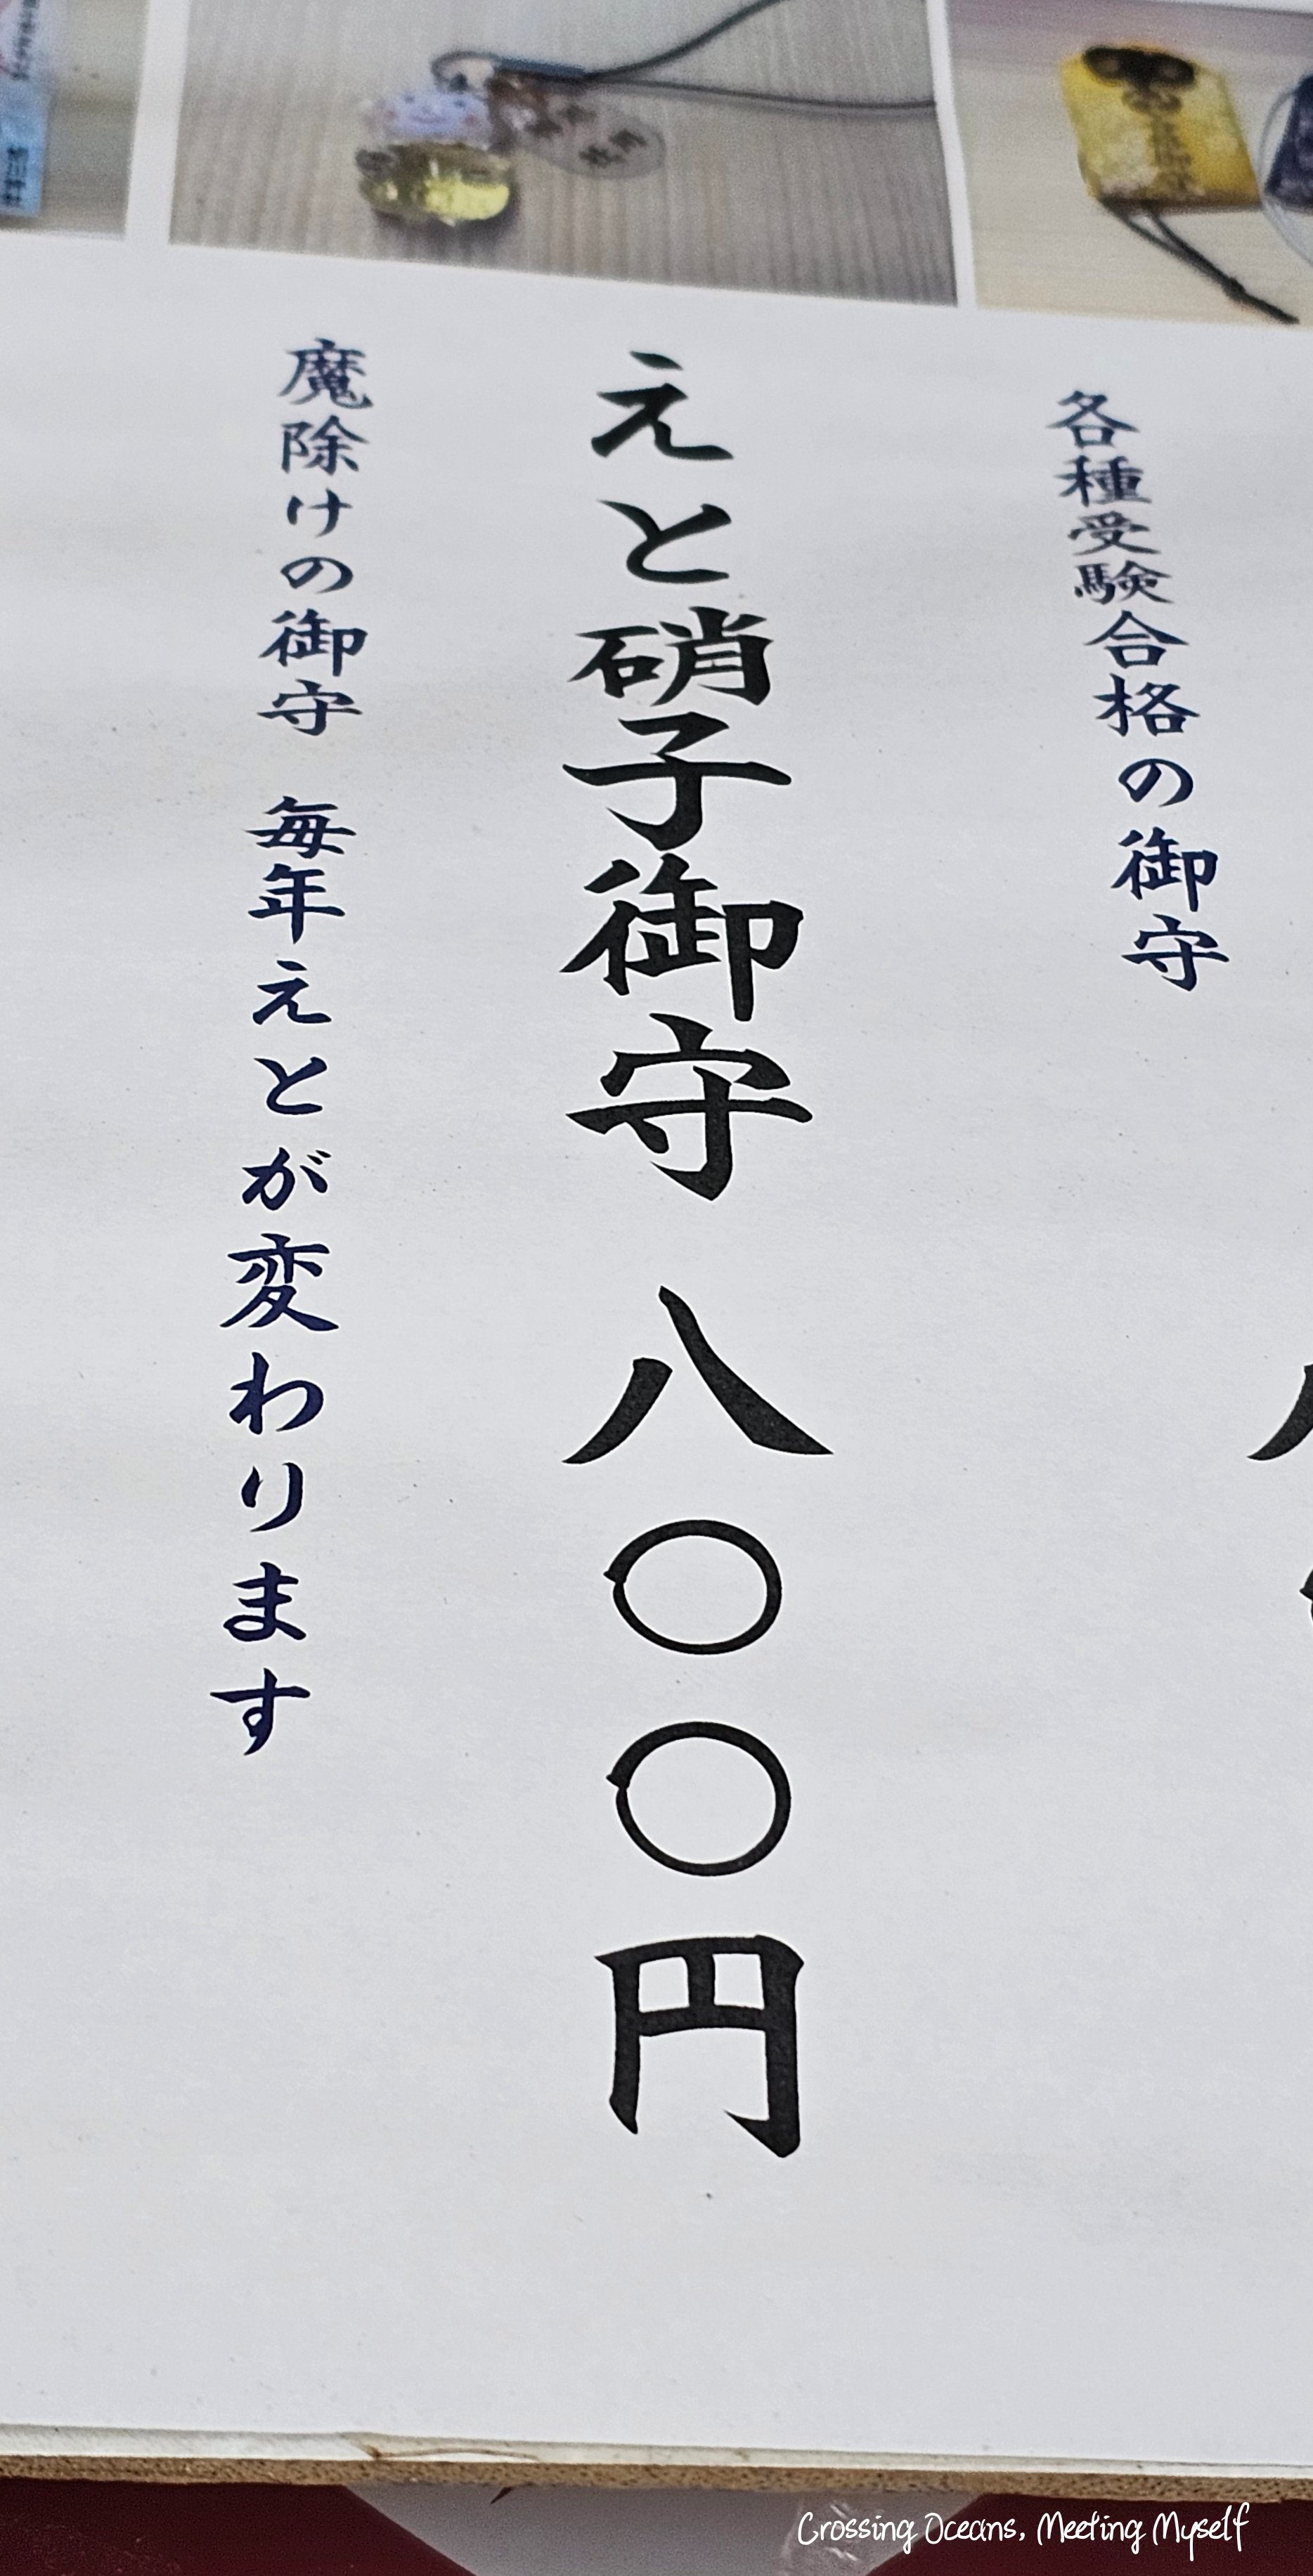 各種受験合格の御守
えと硝子御守 八〇〇円
魔除けの御守 毎年えとが変わります
Crossing Oceans, Meeting Myself